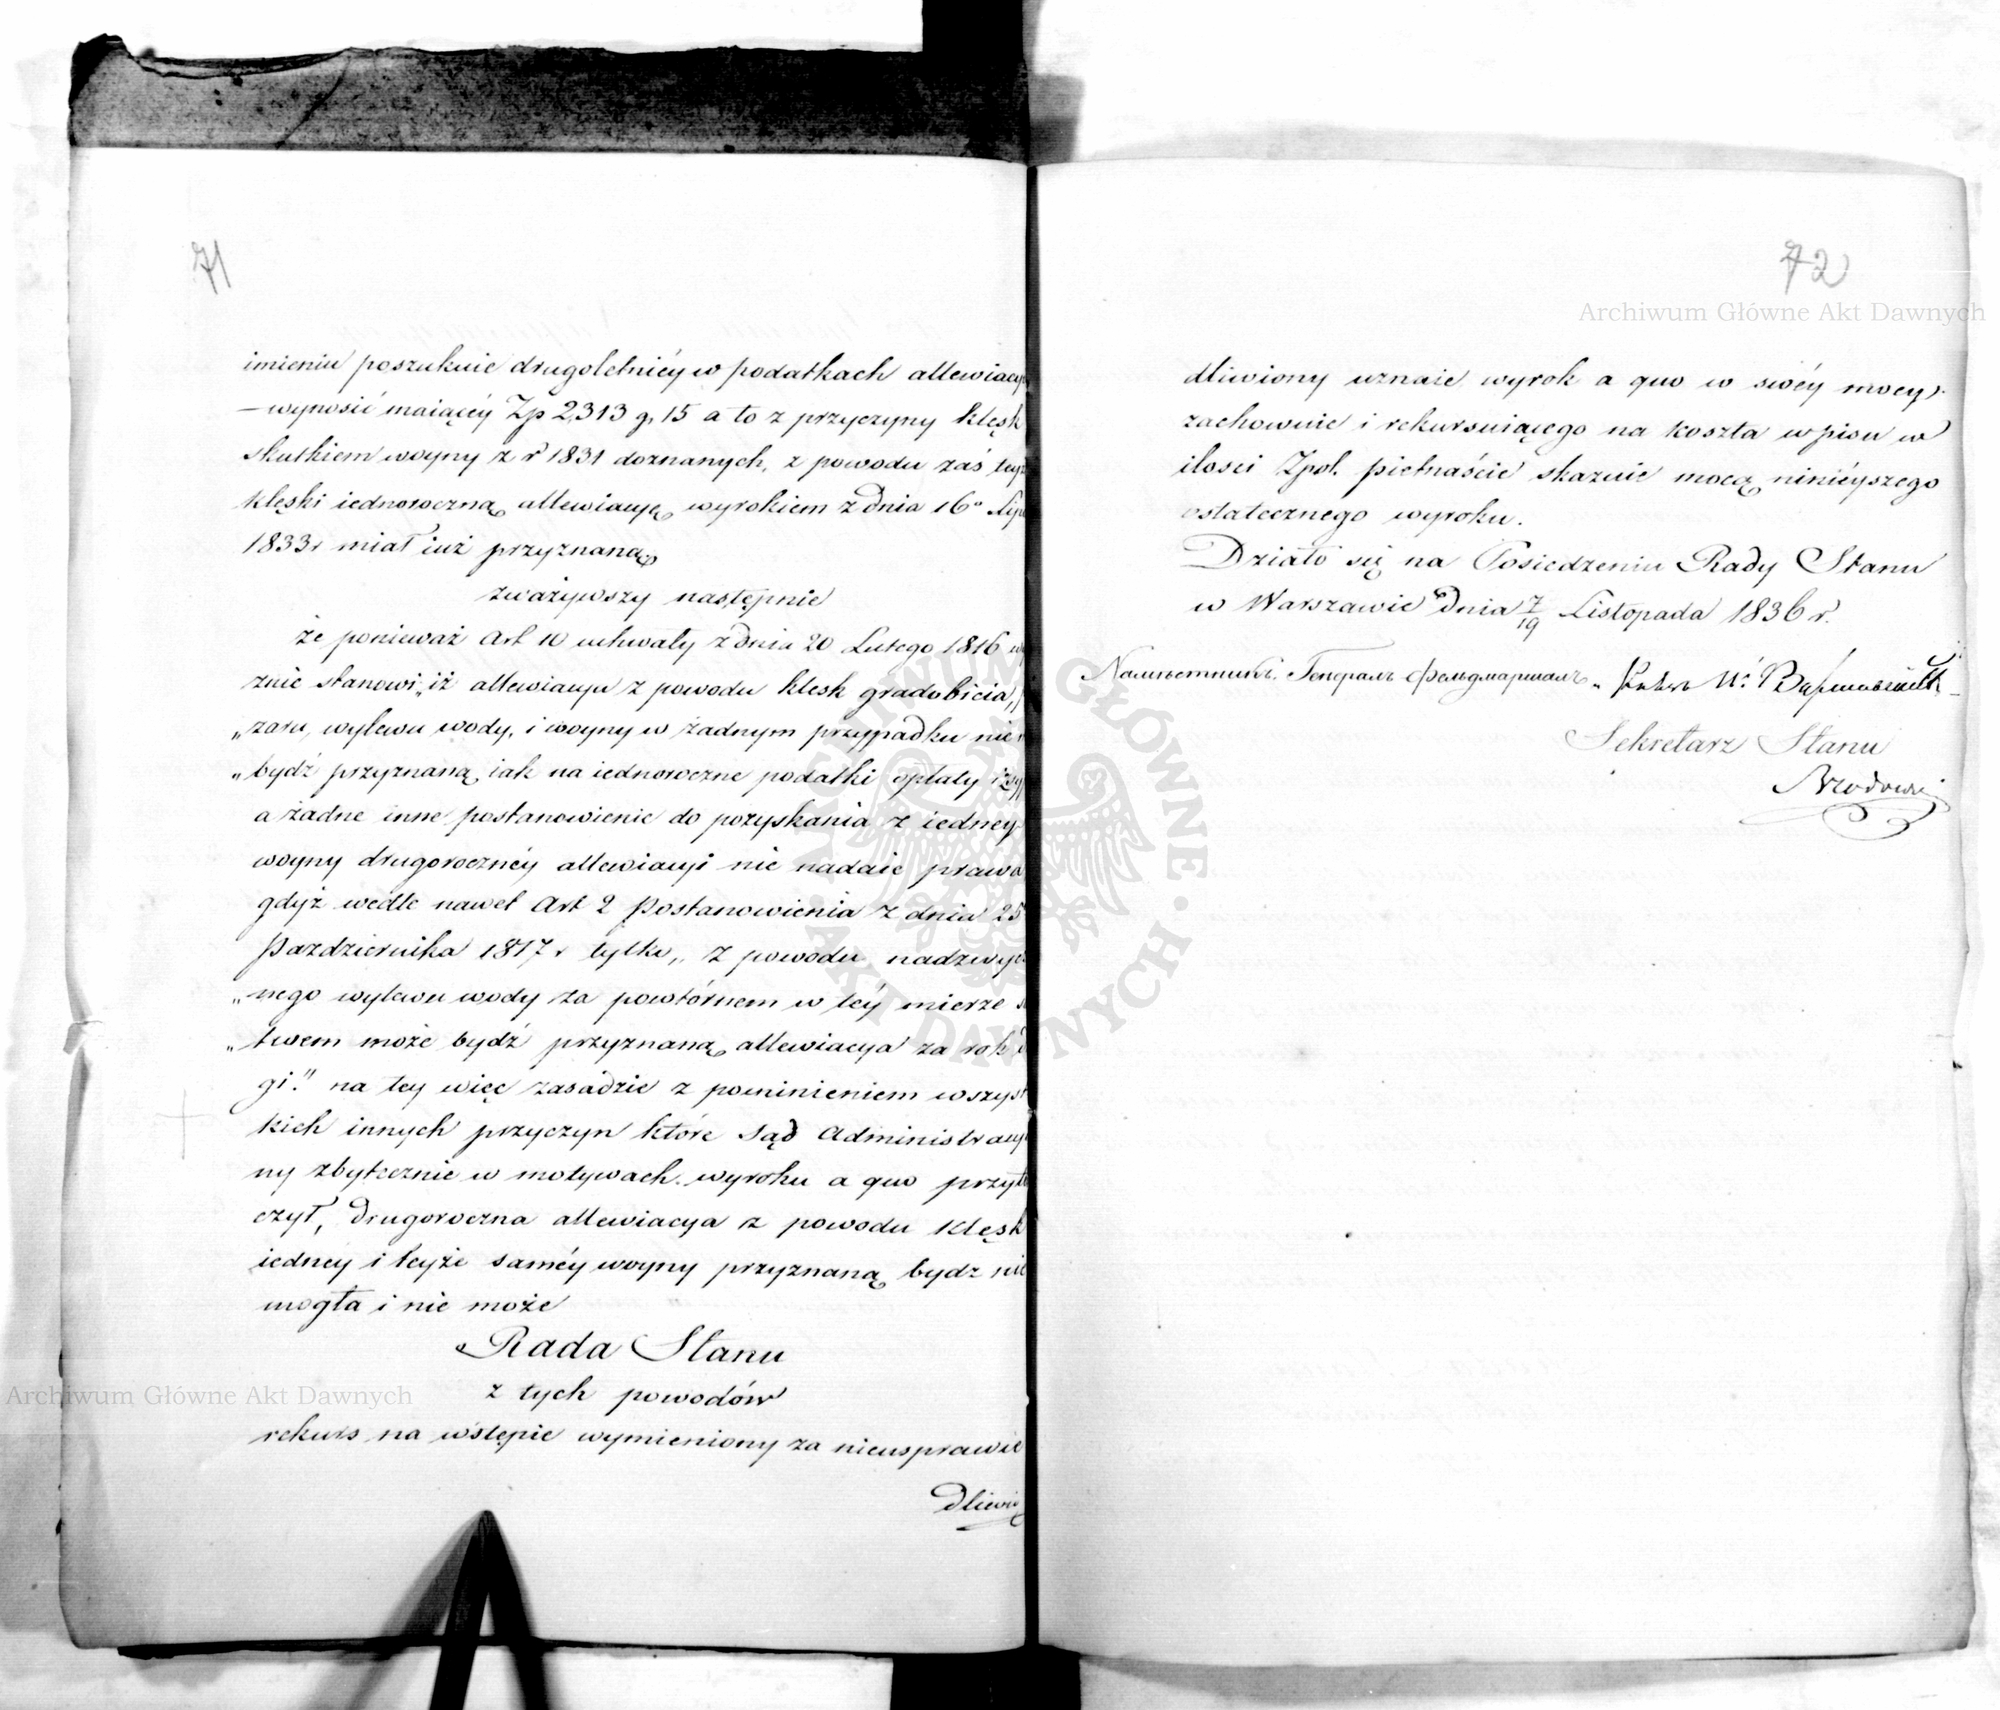 71
imieniu poszukuie drugoletniéy w podatkach allewiacy
—wynosić maiącéy Zp 2313 g. 15 a to z przyczyny klęsk
skutkiem woyny z r 1831 doznanych, z powodu zaś tey
klęski iednoroczną allewiacyę wyrokiem z dnia 16º
1833 r miał iuż przyznaną
zważywszy następnie
że ponieważ Art 10 uchwały z dnia 20 Lutego 1816
znie stanowi, iż allewiacya z powodu klesk gradobicia,
„żaru, wylewu wody, i woyny w żadnym przypadku nie
„bydź przyznaną, iak na iednoroczne podatki opłaty
a żadne inne postanowienie do pozyskania z iedney
woyny drugoroczney allewiacyi nie nadaie prawa
gdyż wedle nawet Art 2 Postanowienia z dnia 25
Pazdziernika 1817 r tylko „z powodu nadzwy
„nego wylewu wody za powtórnem w téy mierze
„twem może bydź przyznaną allewiacya za rok
gi." na tey więc zasadzie z pominieniem wszyst
kich innych przyczyn które Sąd Administracy
ny zbytecznie w motywach wyroku a quo przyto
czył, drugoroczna allewiacya z powodu klęsk
iedney i teyże saméy woyny przyznaną bydz nie
mogła i nie może
Rada Stanu
z tych powodów
rekurs na wstępie wymieniony za nieusprawie
dliwio
72
dliwiony uznaie wyrok a quo w swéy mocy
zachowuie i rekursuiącego na koszta wpisu w
ilosci Zpol. pietnaście skazuie mocą niniéyszego
ostatecznego wyroku.
Działo się na Posiedzeniu Rady Stanu
w Warszawie dnia 7/19 Listopada 1836 r.
Намѣстникъ Генералъ Фельдмаршалъ
Sekretarz Stanu
Archiwum Główne Akt Dawnych
Archiwum Główne Akt Dawnych
ARCHIWUM GŁÓWNE · AKT DAWNYCH ·